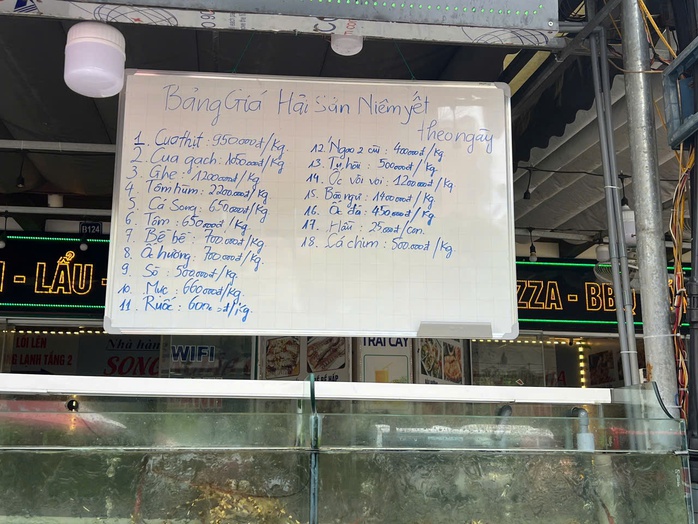 Bảng Giá Hải Sản Niêm yết
theo ngày
1. Cua thịt : 950000đ/kg.
2. Cua gạch : 1050000đ/kg.
3. Ghẹ : 1200000đ/kg.
4. Tôm hùm : 2200000đ/kg.
5. Cá Song : 650000đ/kg.
6. Tôm : 650000đ/kg.
7. Bề bề : 700000đ/kg.
8. Ốc hương : 700000đ/kg.
9. Sò : 500000đ/kg.
10. Mực : 660000đ/kg.
11. Ruốc : 600000đ/kg.
12. Ngao 2 cùi : 400000đ/kg.
13. Tu hài : 500000đ/kg.
14. Ốc vòi voi : 1200000đ/kg
15. Bào ngư : 1400000đ/kg.
16. Ốc đá : 450000đ/kg.
17. Hàu : 25000đ/con.
18. Cá chim : 500000đ/kg.
B124
- LẨU -
ZZA - BBQ
LỐI LÊN
LẠNH TẦNG 2
Nhà hàng
SONG
WIFI
TRÁI CÂY